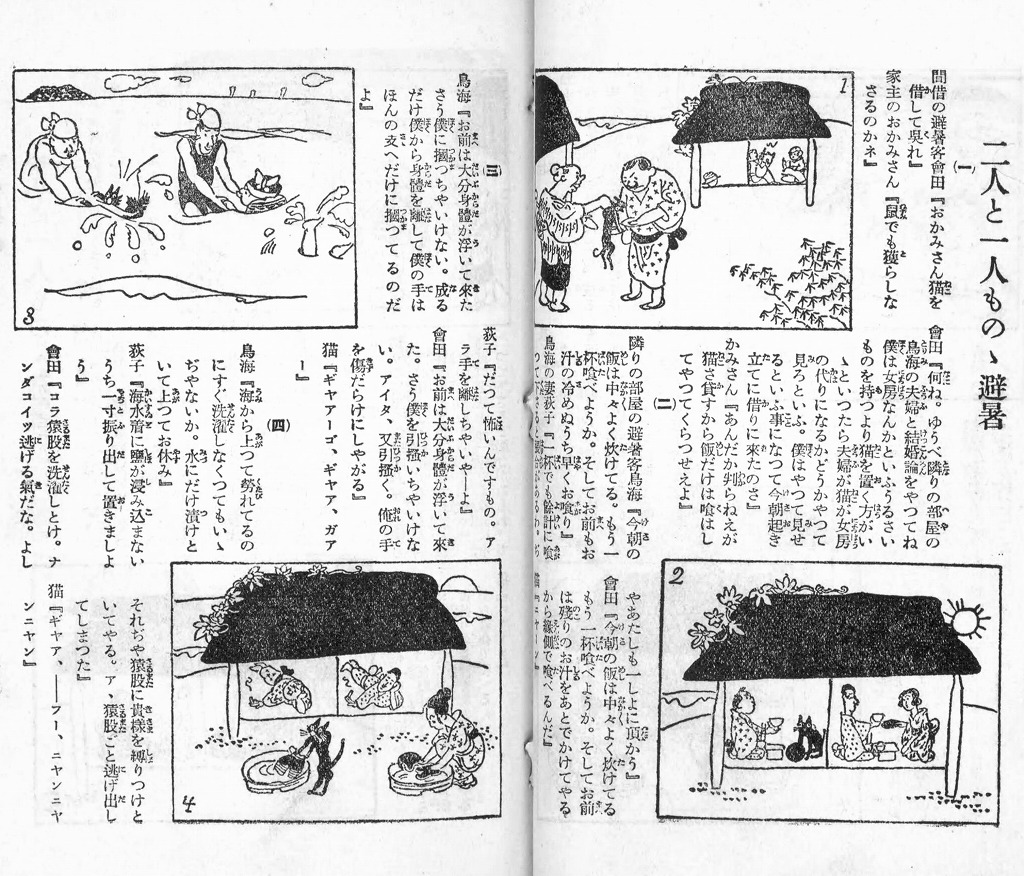 二人と一人ものゝ避暑
(一)
間借の避暑客會田『おかみさん猫を
借して呉れ』
家主のおかみさん『鼠でも獲らしな
さるのかネ』
1
會田『何ね。ゆうべ隣りの部屋の
鳥海の夫婦と結婚論をやつてね
僕は女房なんかといふうるさい
ものを持つより猫を置く方がい
ゝといつたら夫婦が猫が女房
の代りになるかどうかやつて
見ろといふ。僕はやつて見せ
るといふ事になつて今朝起き
立てに借りに來たのさ』
かみさん『あんだか判らねえが
猫さ貸すから飯だけは喰はし
てやつてくらつせえよ』
(二)
隣りの部屋の避暑客鳥海『今朝の
飯は中々よく炊けてる。もう一
杯喰べようか。そしてお前もお
汁の冷めぬうち早くお喰り』
鳥海の妻荻子『一杯でも餘計に喰
やあたしも一しよに頂かう』
會田『今朝の飯は中々よく炊けてる
もう一杯喰べようか。そしてお前
は殘りのお汁をあとでかけてやる
から緣側で喰べるんだ』
猫『ニヤーン』
2
(三)
鳥海『お前は大分身體が浮いて來た
さう僕に摑つちやいけない。成る
だけ僕から身體を離して僕の手は
ほんの支へだけに摑つてるのだ
よ』
3
荻子『だつて怖いんですもの。ア
ラ手を離しちやいやーよ』
會田『お前は大分身體が浮いて來
た。さう僕を引搔いちやいけな
い。アイタ、又引搔く。俺の手
を傷だらけにしやがる』
猫『ギヤアーゴ、ギヤア、ガア
ー』
(四)
鳥海『海から上つて勞れてるの
にすぐ洗濯しなくつてもいゝ
ぢやないか。水にだけ漬けと
いて上つてお休み』
荻子『海水着に鹽が浸み込まない
うち一寸振り出して置きましよ
う』
會田『コラ猿股を洗濯しとけ。ナ
ンダコイツ逃げる氣だな。よし
それぢや猿股に貴樣を縛りつけと
いてやる。ア、猿股ごと逃げ出し
てしまつた』
猫『ギヤア、——フー、ニヤンニヤ
ンニヤン』
4